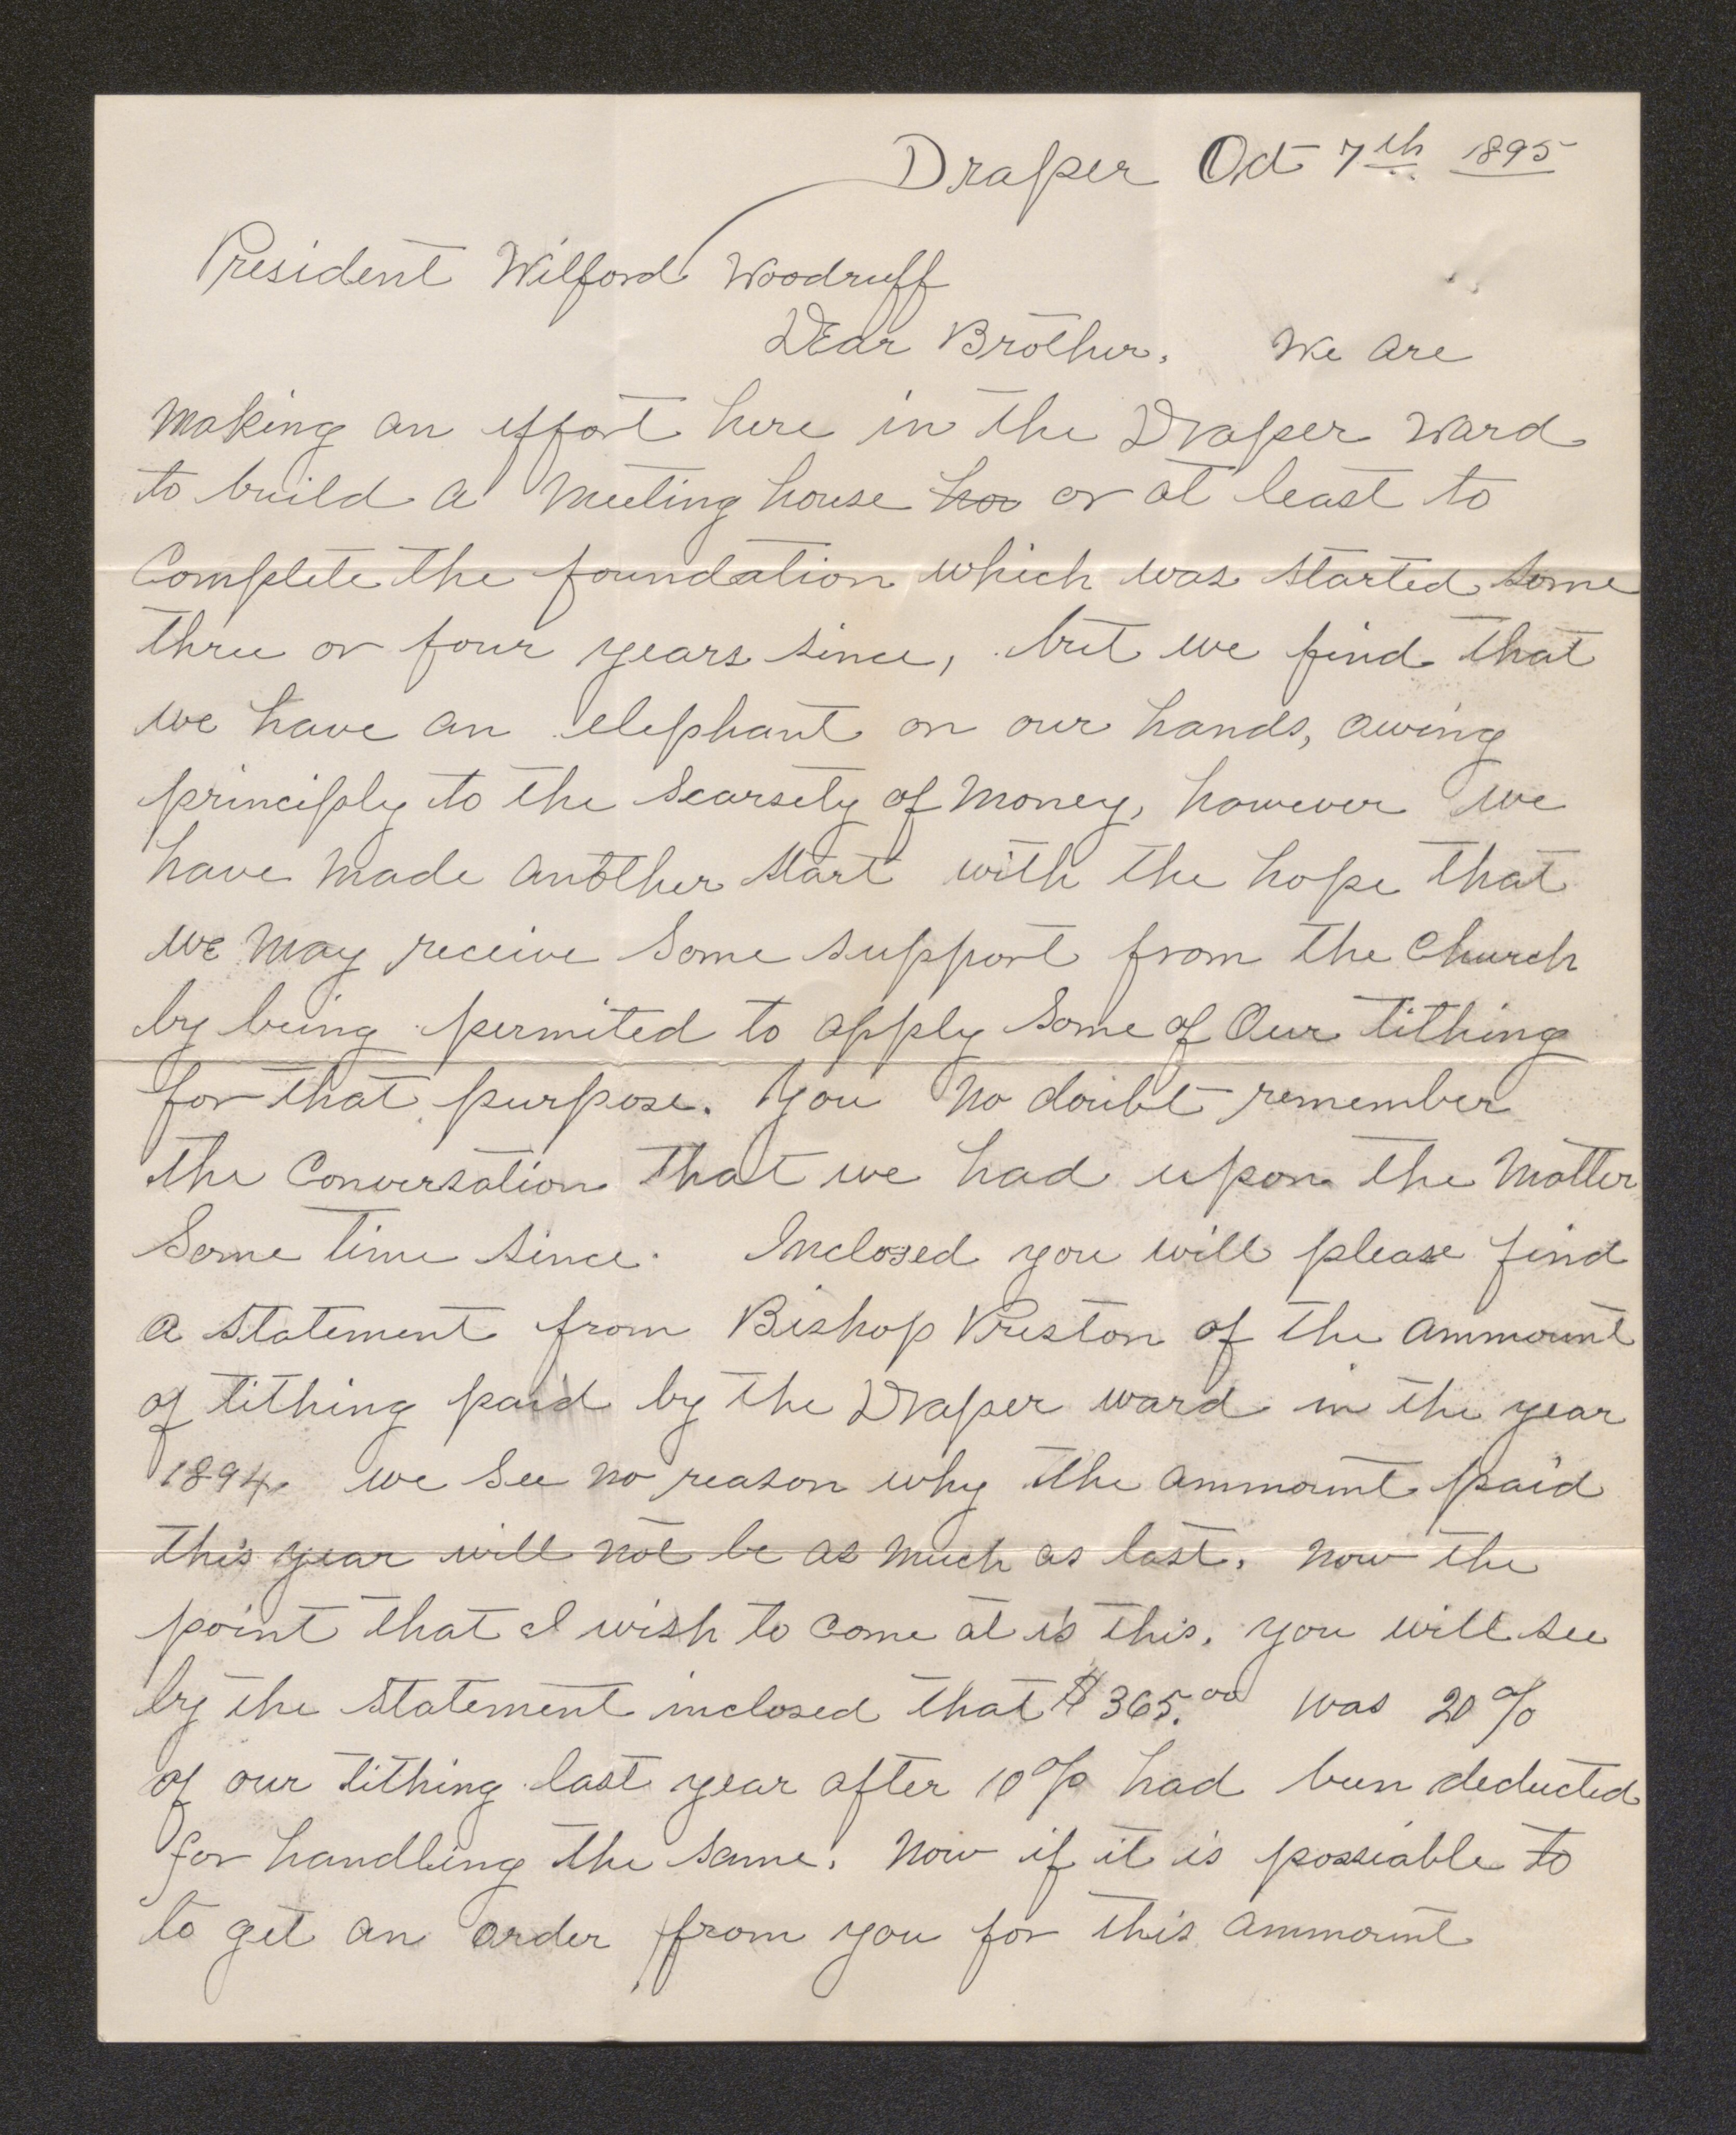 Draper Oct 7th 1895
President Wilford Woodruff
Dear Brother. We are
making an effort here in the Draper Ward
to build a meeting house hou or at least to
Complete the foundation which was started some
three or four years since, but we find that
we have an elephant on our hands, owing
principly to the scarsety of money, however we
have made another start with the hope that
we may receive some support from the Church
by being permited to apply some of our tithing
for that purpose. You no doubt remember
the Conversation that we had upon the matter
Some time since. Inclosed you will please find
a statement from Bishop Preston of the ammount
of tithing paid by the Draper ward in the year
1894. we see no reason why the ammount paid
this year will not be as much as last. now the
point that I wish to come at is this. you will see
by the statement inclosed that $365.00 was 20%
of our tithing last year after 10% had been deducted
for handlling the same. now if it is possiable to
to get an order from you for this ammount